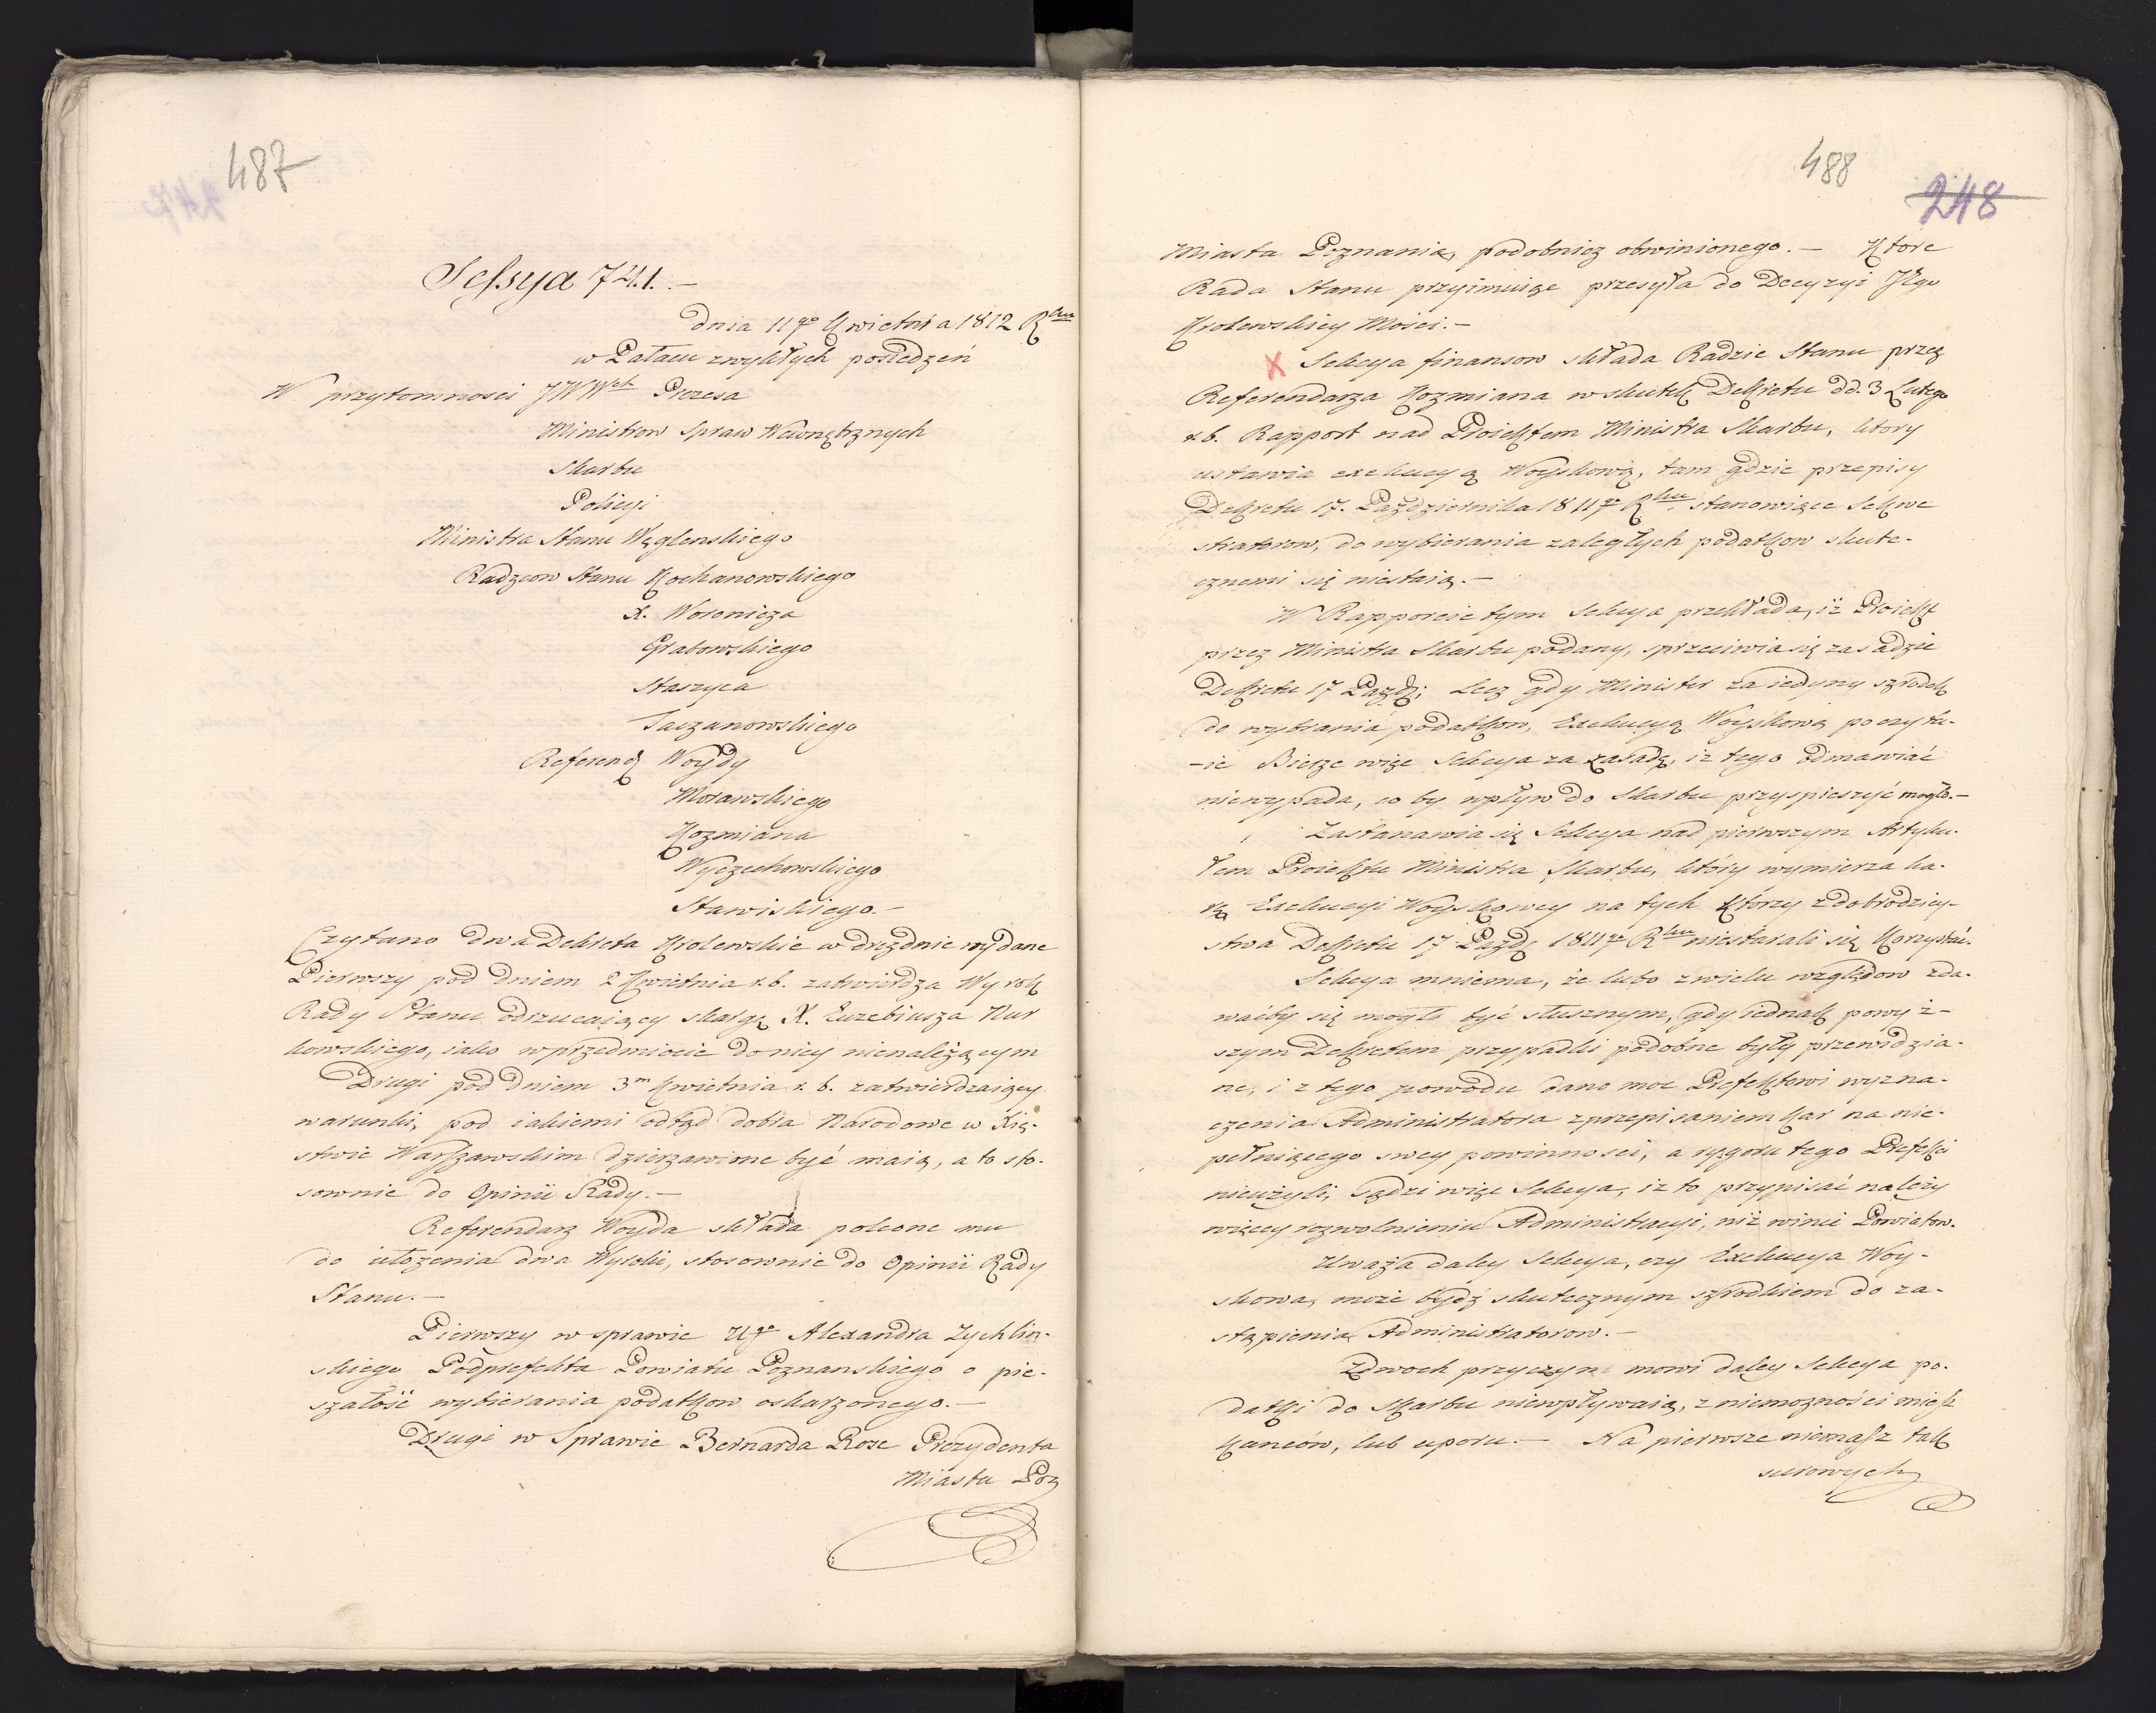 487
Sessya 741.–
dnia 11go Kwietnia 1812 Rku
w Pałacu zwykłych posiedzeń
W przytomnosci JWWch Prezesa
Ministrow Spraw Wewnętrznych
Skarbu
Policyi
Ministra Stanu Węglenskiego
Radzcow Stanu Kochanowskiego
X. Woronicza
Grabowskiego
Staszyca
Taczanowskiego
Referend Woydy
Morawskiego
Kozmiana
Wyczechowskiego
Stawiskiego.–
Czytano dwa Dekreta Krolewskie w dreznie wydane
Pierwszy pod dniem 2 Kwietnia r. b. zatwierdza Wyrok
Rady Stanu odrzucaiący skargę X. Euzebiusza Kur
kowskiego, iako w przedmiocie do niey nienależącym
Drugi pod dniem 3m Kwietnia r. b. zatwierdzaiący
warunki, pod iakiemi odtąd dobra Narodowe w Xię-
stwie Warszawskim dzierzawione być maią, a to sto-
sownie do Opinii Rady.–
Referendarz Woyda składa polecone mu
do ułozenia dwa Wyroki, stosownie do Opinii Rady
Stanu.–
Pierwszy w sprawie Ugo Alexandra Zychlin-
skiego Podprefekta Powiatu Poznanskiego o pie-
szałość wybierania podatkow oskarzonego.–
Drugi w Sprawie Bernarda Rose Prezydenta
Miasta Poz
488
248
Miasta Poznania, podobniez obwinionego.– Ktore
Rada Stanu przyimuiąc przesyła do Decyzyi JKgo
Krolewskiey Mości.–
X Sekcya finansow składa Radzie Stanu przez
Referendarza Kozmiana w skutek Dekretu dd. 3 Lutego
r. b. Rapport nad Proiektem Ministra Skarbu, ktory
ustawia exekucyą Woyskową, tam gdzie przepisy
Dekretu 17. Października 1811go Rku. stanowiące Sekwe
stratorow, do wybierania zaległych podatkow skute-
cznemi się niestaią.–
W Rapporcie tym Sekcya przekłada, iż Proiekt
przez Ministra Skarbu podany, sprzeciwia się zasadzie
Dekretu 17 Paźdz; Lecz gdy Minister za iedyny szrodek
do wybrania podatkow, Exekucyą Woyskową poczytu-
-ie Bierze więc Sekcya za zasadę, iz tego odmawiać
niewypada, co by wpływ do Skarbu przyspieszyć mogło.–
Zastanawia się Sekcya nad pierwszym Artyku-
łem Proiektu Ministra Skarbu, który wymierza ka-
rę Exekucyi Woyskowey na tych ktorzy z dobrodziey-
stwa Dekretu 17 Paźdz 1811go Rku niestarali się korzystać.
Sekcya mniema, że lubo z wielu względow zda-
waćby się mogło być słusznym, gdy iednak powyż-
szym Dekretem przypadki podobne były przewidzia-
ne, i z tego powodu dano moc Prefektowi wyzna-
czenia Administratora z przepisaniem kar na nie-
pełniącego swey powinności, a rygoru tego Prefekci
nieużyli, sądzi więc Sekcya, iz to przypisać należy
więcey rozwolnieniu Administracyi, niż winie Powiatow.
Uważa daley Sekcya, czy Exekucya Woy-
skowa, może bydź skutecznym szrodkiem do za-
stąpienia Administratorow.–
Z dwoch przyczyn mowi daley Sekcya po-
datki do Skarbu niewpływaią, z niemozności miesz
kancow, lub uporu.– Na pierwsze niemasz tak
surowych